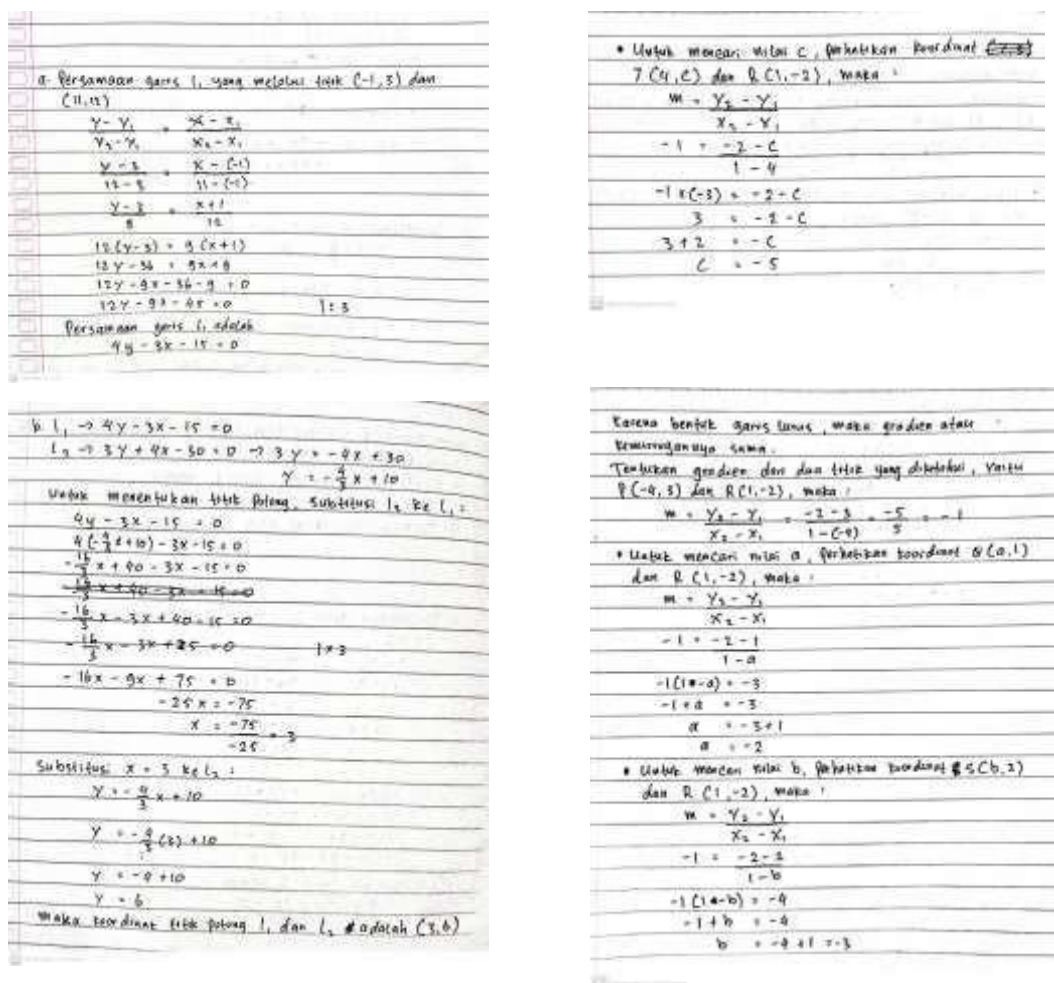 a. Persamaan garis l₁ yang melalui titik (-1, 3) dan
(11,12)
y - y₁ / y₂ - y₁ = x - x₁ / x₂ - x₁
y - 3 / 12 - 3 = x - (-1) / 11 - (-1)
y - 3 / 9 = x + 1 / 12
12 (y - 3) = 9 (x + 1)
12 y - 36 = 9x + 9
12 y - 9x - 36 - 9 = 0
12 y - 9x - 45 = 0 | : 3
Persamaan garis l₁ adalah
4y - 3x - 15 = 0
b. l₁ → 4y - 3x - 15 = 0
l₂ → 3y + 4x - 30 = 0 → 3y = -4x + 30
y = -4/3 x + 10
Untuk menentukan titik potong, substitusi l₂ ke l₁ :
4y - 3x - 15 = 0
4 (-4/3 x + 10) - 3x - 15 = 0
-16/3 x + 40 - 3x - 15 = 0
-16/3 x + 40 - 3x - 15 = 0
-16/3 x - 3x + 40 - 15 = 0
-16/3 x - 3x + 25 = 0 | × 3
-16x - 9x + 75 = 0
-25x = -75
x = -75 / -25 = 3
Substitusi x = 3 ke l₂ :
y = -4/3 x + 10
y = -4/3 (3) + 10
y = -4 + 10
y = 6
maka koordinat titik potong l₁ dan l₂ adalah (3,6)
• Untuk mencari nilai c, perhatikan koordinat
T (4, c) dan R (1, -2), maka :
m = y₂ - y₁ / x₂ - x₁
-1 = -2 - c / 1 - 4
-1 × (-3) = -2 - c
3 = -2 - c
3 + 2 = -c
c = -5
Karena bentuk garis lurus, maka gradien atau
kemiringannya sama.
Tentukan gradien dari dua titik yang diketahui, yaitu
P (-4, 3) dan R (1, -2), maka :
m = y₂ - y₁ / x₂ - x₁ = -2 - 3 / 1 - (-4) = -5 / 5 = -1
• Untuk mencari nilai a, perhatikan koordinat Q (a, 1)
dan R (1, -2), maka :
m = y₂ - y₁ / x₂ - x₁
-1 = -2 - 1 / 1 - a
-1 (1 - a) = -3
-1 + a = -3
a = -3 + 1
a = -2
• Untuk mencari nilai b, perhatikan koordinat S (b, 2)
dan R (1, -2), maka :
m = y₂ - y₁ / x₂ - x₁
-1 = -2 - 2 / 1 - b
-1 (1 - b) = -4
-1 + b = -4
b = -4 + 1 = -3